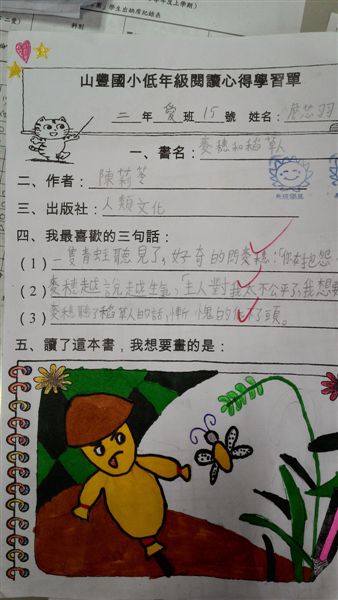 山豐國小低年級閱讀心得學習單
二 年 愛 班 15 號 姓名：
一、書名：麥穗和稻草人
二、作者：陳莉苓
三、出版社：人類文化
四、我最喜歡的三句話：
(1) 一隻青蛙聽見了，好奇的問麥穗：「你在抱怨
(2) 麥穗越說越生氣，「主人對我太不公平了，我想要
(3) 麥穗聽了稻草人的話，慚愧的低了頭。
五、讀了這本書，我想要畫的是：